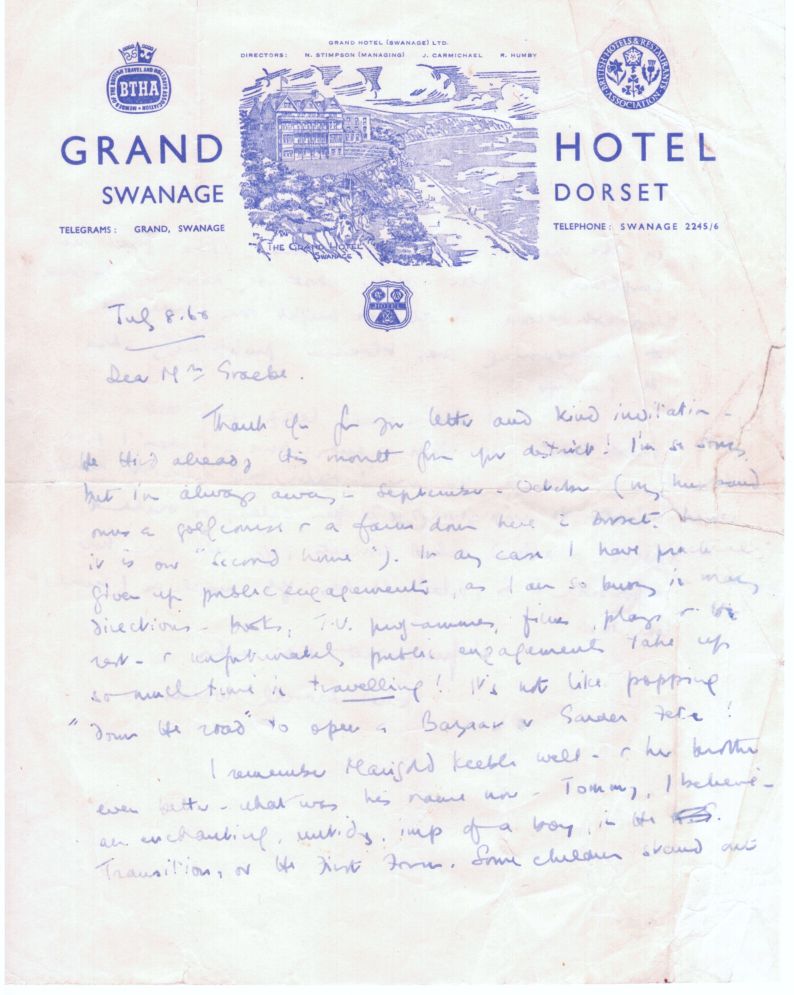 GRAND HOTEL (SWANAGE) LTD.
DIRECTORS: N. STIMPSON (MANAGING) J. CARMICHAEL R. HUMBY
MEMBER OF THE BRITISH TRAVEL AND HOLIDAYS ASSOCIATION
BTHA
BRITISH HOTELS & RESTAURANTS ASSOCIATION
GRAND HOTEL
SWANAGE DORSET
TELEGRAMS: GRAND, SWANAGE TELEPHONE: SWANAGE 2245/6
THE GRAND HOTEL
SWANAGE
HOTEL
July 8.
Dear Mrs Graebe.
Thank you for your letter and kind invitation -
the third already this month from your district! I'm so sorry,
but I'm always away in September - October (my husband
owns a golf course & a farm down here in Dorset.
it is our "second home"). In any case I have
given up public engagements, as I am so busy in many
directions - books, T.V. programmes, films, plays & the
rest - & unfortunately public engagements take up
so much time in travelling! It's not like popping
"down the road" to open a Bazaar or Garden Fete!
I remember Marigold Keeble well - & her brother
even better - what was his name now - Tommy, I believe -
an enchanting, untidy, imp of a boy, in the
Transition, or the First Form. Some children stand out